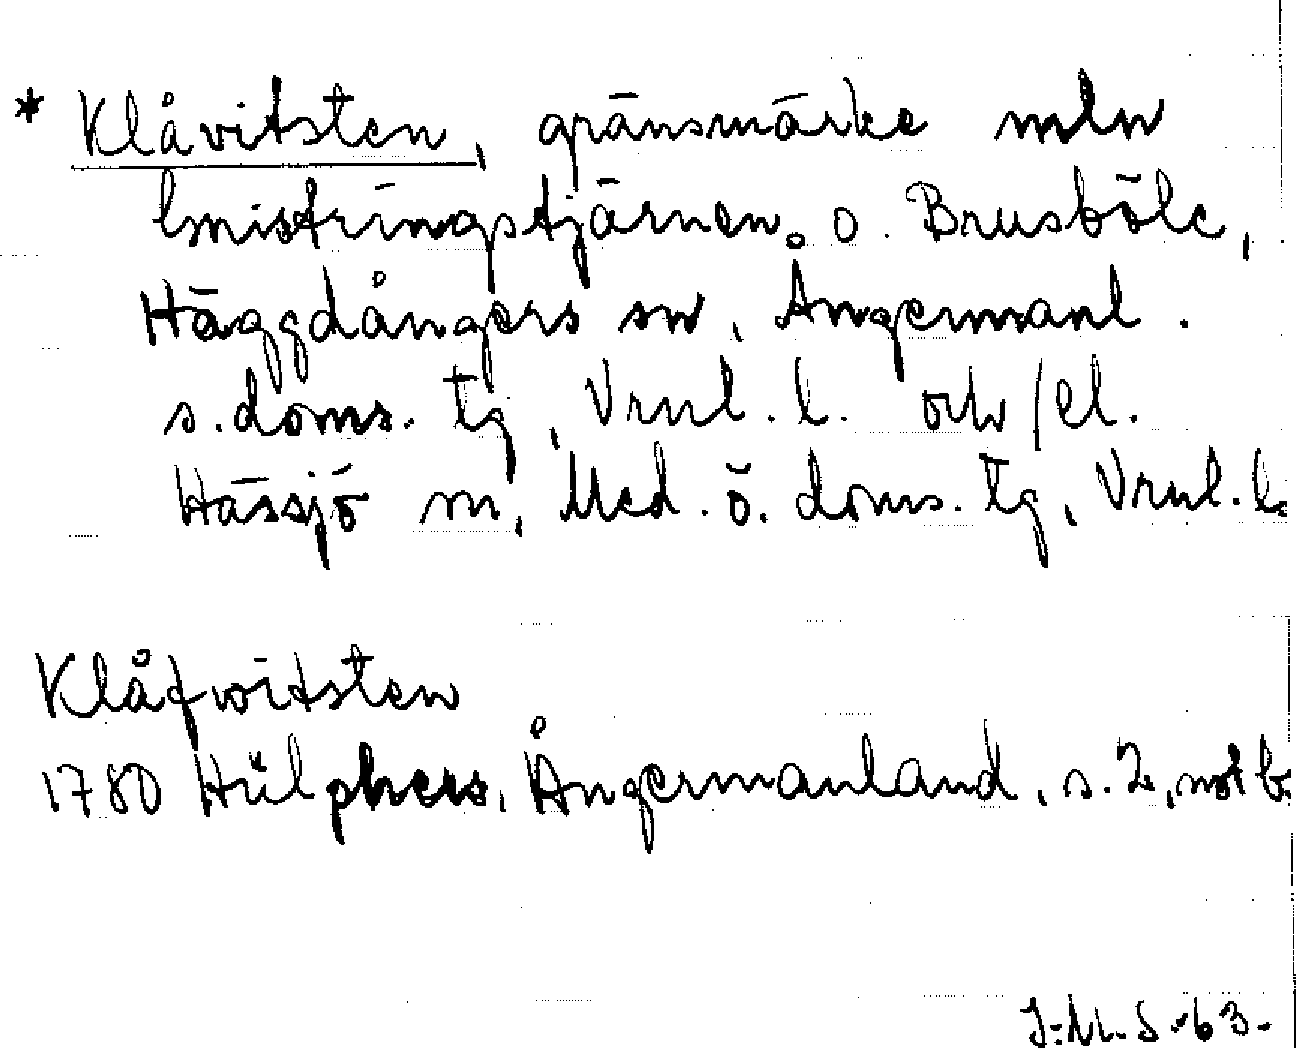 * Klåvitsten, gränsmärke mln
Gnistringstjärnen. o. Brusböle,
Häggdångers sn, Ångermanl.
s. doms. tg, Vrnl. l. och/el.
Hässjö sn, Med. ö. doms. tg, Vrnl. l.
Klåfwitsten
1780 Hülphers, Ångermanland, s. 2, not b.
J.M.S -63-